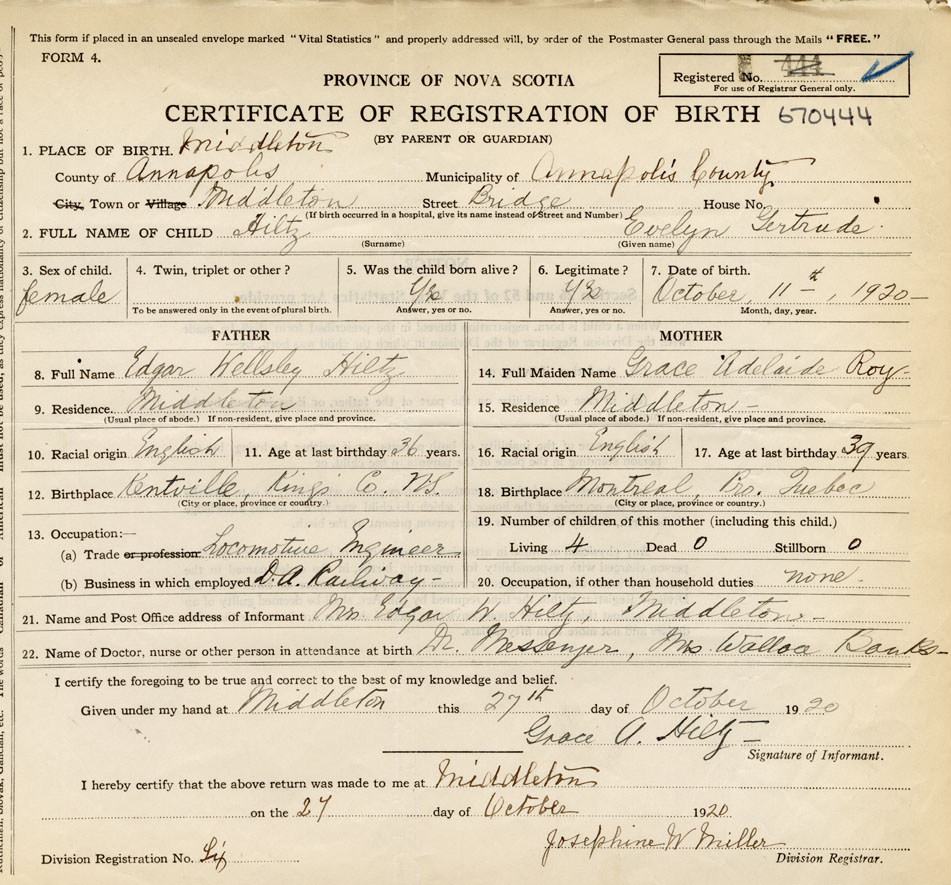 This form if placed in an unsealed envelope marked "Vital Statistics" and properly addressed will, by order of the Postmaster General pass through the Mails "FREE."
FORM 4.
Registered No. 444
For use of Registrar General only.
PROVINCE OF NOVA SCOTIA
CERTIFICATE OF REGISTRATION OF BIRTH 670444
(BY PARENT OR GUARDIAN)
1. PLACE OF BIRTH. Middleton
County of Annapolis Municipality of Annapolis County
City, Town or Village Middleton Street Bridge House No.
(If birth occurred in a hospital, give its name instead of Street and Number)
2. FULL NAME OF CHILD Hiltz Evelyn Gertrude.
(Surname) (Given name)
3. Sex of child. 4. Twin, triplet or other? 5. Was the child born alive? 6. Legitimate? 7. Date of birth.
female Yes Yes October, 11th, 1920
To be answered only in the event of plural birth. Answer, yes or no. Answer, yes or no. Month, day, year.
FATHER MOTHER
8. Full Name Edgar Wellsley Hiltz 14. Full Maiden Name Grace Adelaide Roy
9. Residence. Middleton 15. Residence Middleton
(Usual place of abode.) If non-resident, give place and province. (Usual place of abode.) If non-resident, give place and province.
10. Racial origin English 11. Age at last birthday 36 years. 16. Racial origin English 17. Age at last birthday 39 years
12. Birthplace Kentville, Kings Co. N.S. 18. Birthplace Montreal, Pro. Quebec
(City or place, province or country.) (City or place, province or country.)
13. Occupation:— 19. Number of children of this mother (including this child.)
(a) Trade or profession Locomotive Engineer Living 4 Dead 0 Stillborn 0
(b) Business in which employed D.A. Railway 20. Occupation, if other than household duties none.
21. Name and Post Office address of Informant Mrs. Edgar W. Hiltz, Middleton
22. Name of Doctor, nurse or other person in attendance at birth Dr. Messenger, Mrs Wallace Banks
I certify the foregoing to be true and correct to the best of my knowledge and belief.
Given under my hand at Middleton this 27th day of October 1920
Grace A. Hiltz
Signature of Informant.
I hereby certify that the above return was made to me at Middleton
on the 27 day of October 1920
Josephine W Miller
Division Registration No. Six Division Registrar.